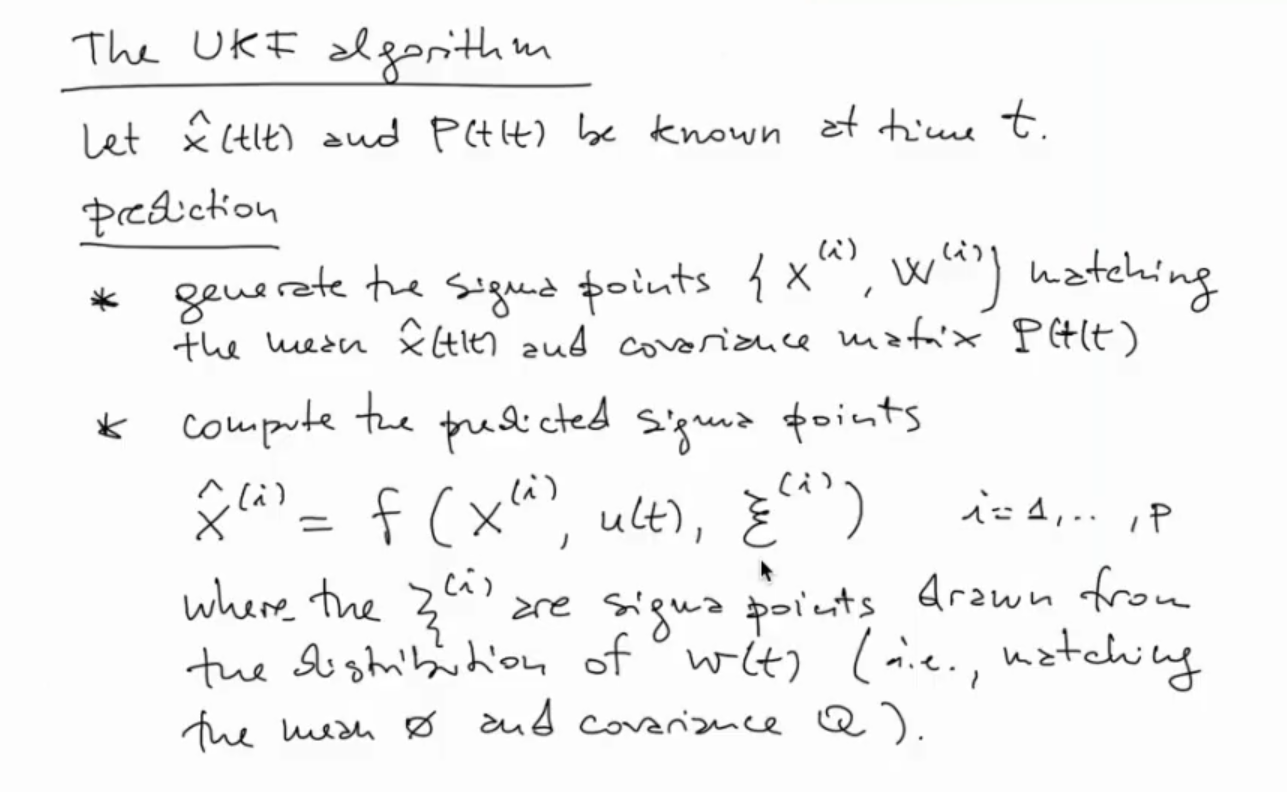 The UKF algorithm
Let x̂(t|t) and P(t|t) be known at time t.
prediction
* generate the sigma points { x^(i), W^(i) } matching
the mean x̂(t|t) and covariance matrix P(t|t)
* compute the predicted sigma points
x̂^(i) = f ( x^(i), u(t), ξ^(i) ) i=1,.. ,p
where the ξ^(i) are sigma points drawn from
the distribution of w(t) (i.e., matching
the mean 0 and covariance Q).